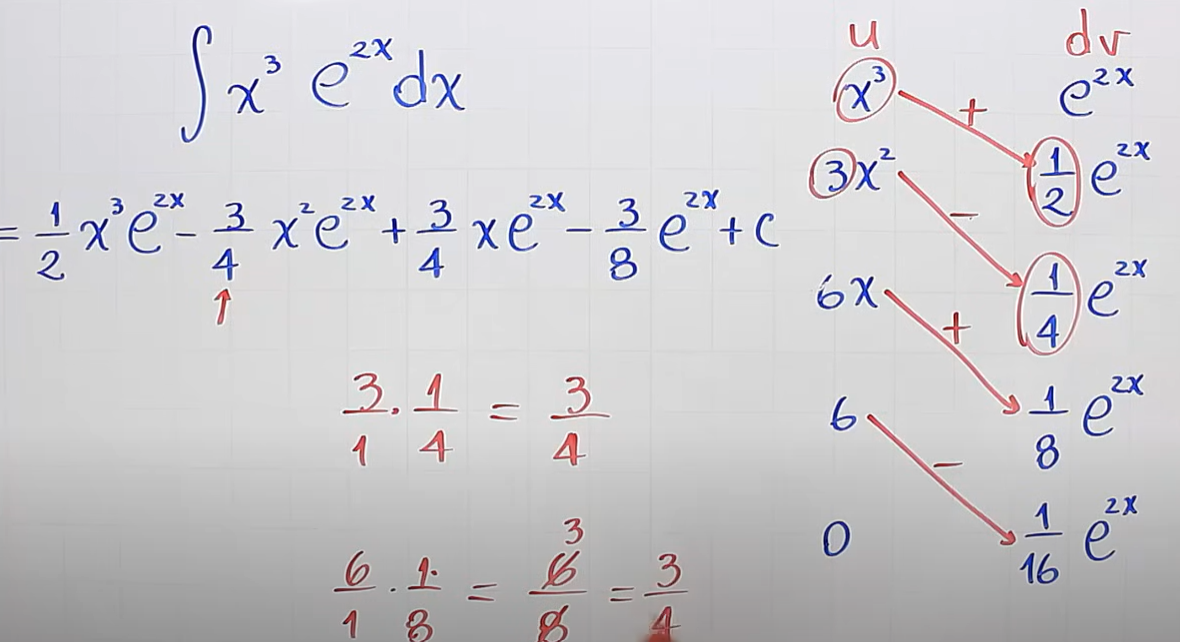 ∫ x³ e²ˣ dx
= 1/2 x³e²ˣ - 3/4 x²e²ˣ + 3/4 xe²ˣ - 3/8 e²ˣ + C
↑
3/1 · 1/4 = 3/4
6/1 · 1/8 = 6/8 3 = 3/4
u dv
x³ + e²ˣ
3x² - 1/2 e²ˣ
6x + 1/4 e²ˣ
6 - 1/8 e²ˣ
0 1/16 e²ˣ